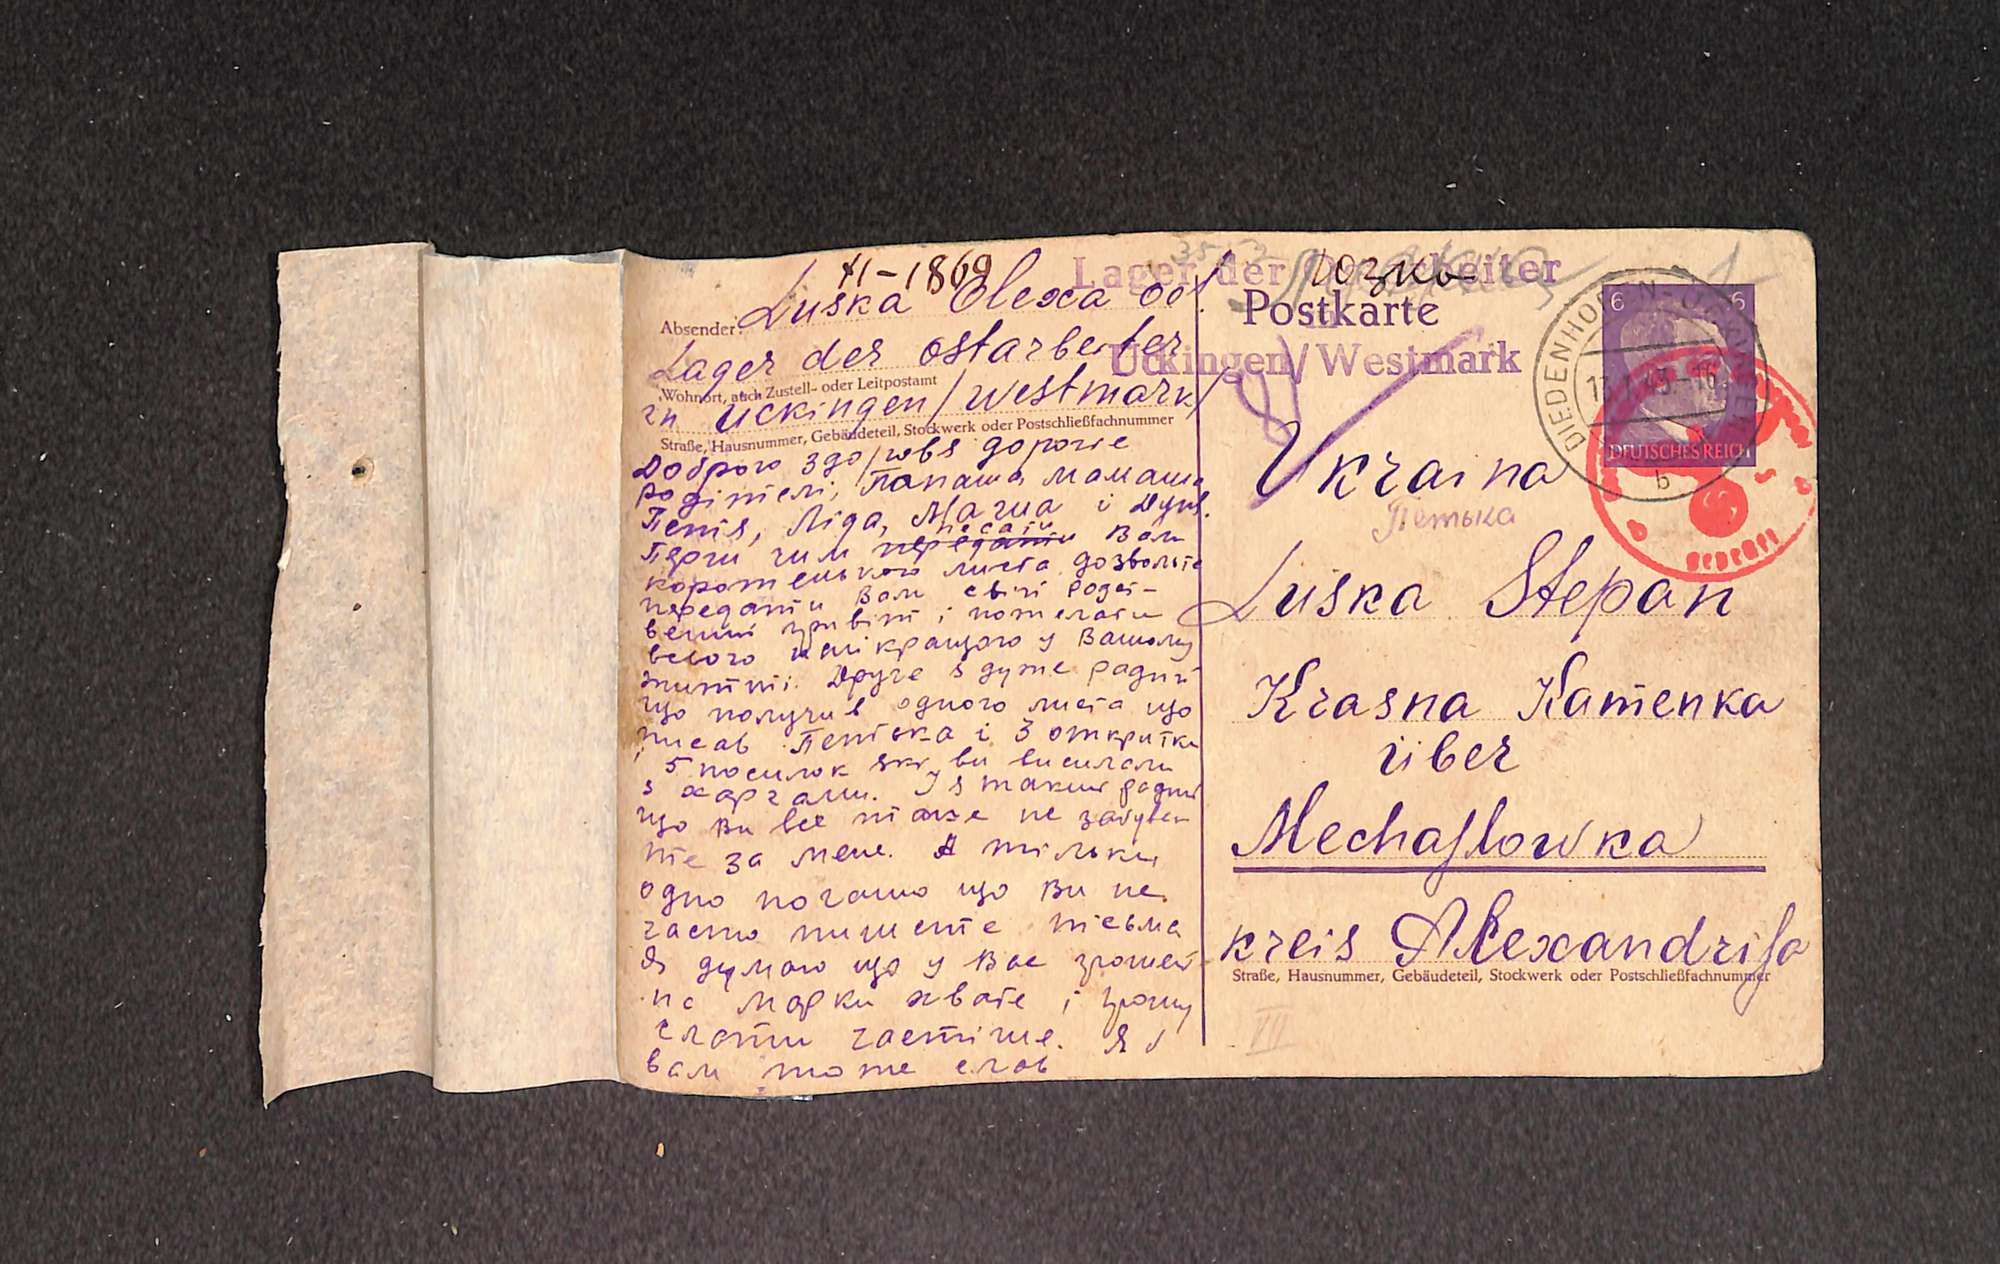 н-1869
Luska Olexa
Absender
Lager der ostarbeiter
Wohnort, auch Zustell- oder Leitpostamt
in Uckingen/westmark/
Straße, Hausnummer, Gebäudeteil, Stockwerk oder Postschließfachnummer
Доброго здоровя дорогіе
родітелі, Папаша мамаша
Петя, Ліда, Маруся і
Перш чим писати Вам
коротенького листа дозвольте
передати Вам свій
привіт і пожелати
всього найкращого у Вашому
житті. Друге я дуже радий
що получив одного листа що
писав Петька і 3 открітки
5 посилок які ви висилали
з харчами. І я такий радий
що Ви все таке не забуває
те за мене. А тільки
одно погано що Ви не
часто пишете письма
Я думаю що у Вас грошей
на марки хвате і прошу
слати частіше. Я
вам тоже слав
3553
Lager der Ostarbeiter
Postkarte
Uckingen/Westmark
DIEDENHOFEN-UCKINGEN
13.1.43-16
b
6 6
DEUTSCHES REICH
geprüft
Ukraina
Петька
Luska Stepan
Krasna Kamenka
über
Mechajlowka
kreis Alexandrija
Straße, Hausnummer, Gebäudeteil, Stockwerk oder Postschließfachnummer
VII